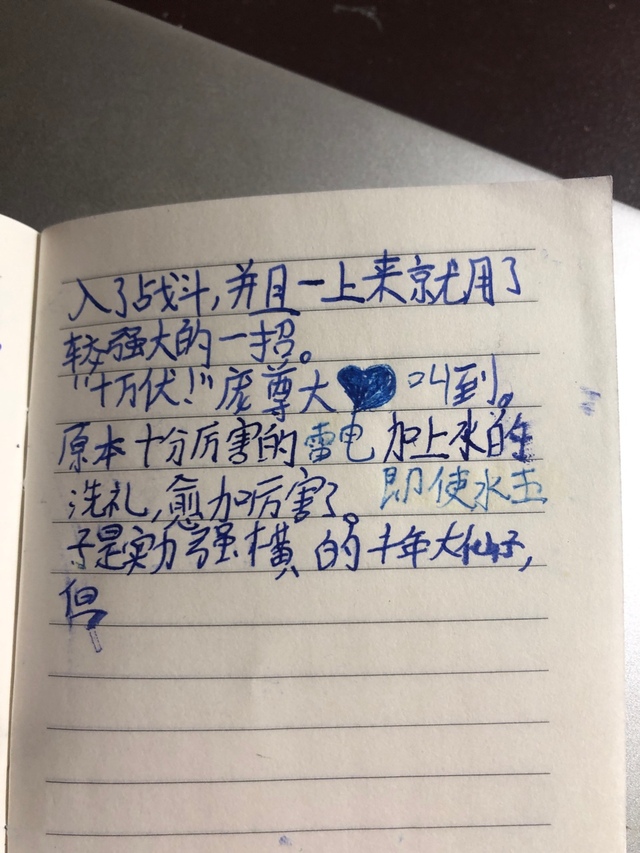 入了战斗,并且一上来就用了
较强大的一招。
"十万伏!"庞尊大叫到。
原本十分厉害的雷电加上水的
洗礼,愈加厉害了。即使水王
子是实力强横的千年大仙子,
但